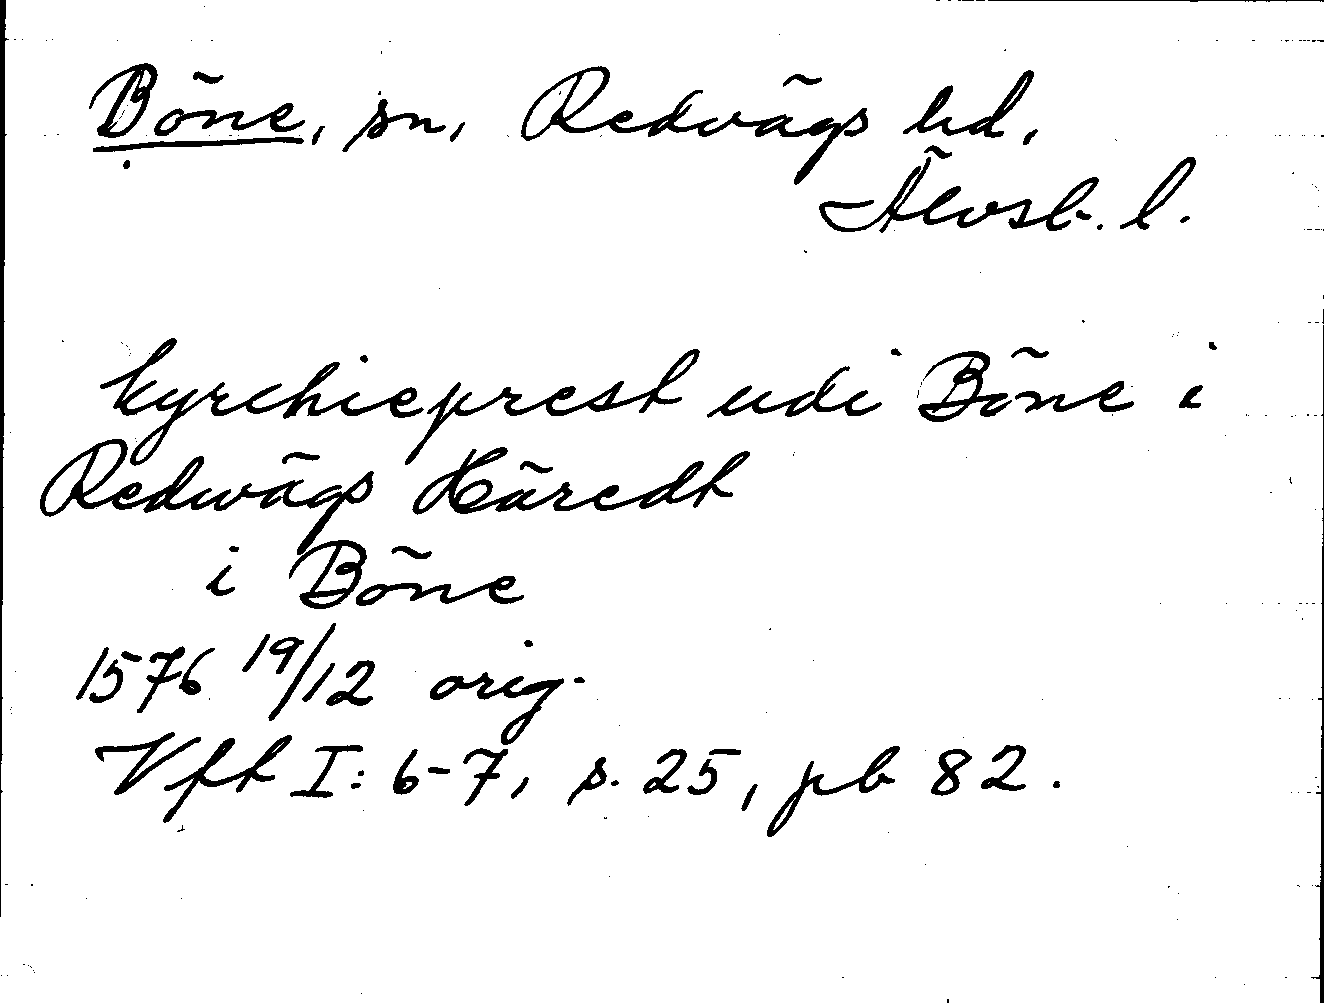 Böne, sn, Redvägs hd,
Älvsb. l.
kyrchieprest udi Böne i
Redwägs Häredt
i Böne
1576 19/12 orig.
Vft I: 6-7, s. 25, pb 82.